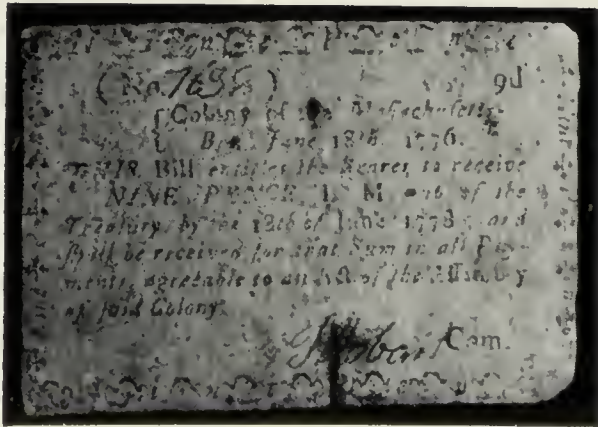 (No. 7635) 9d
Colony of the Massachusetts
June 18th. 1776.
THIS Bill entitles the Bearer to receive
NINE PENCE L. M. out of the
Treasury by the 18th of June 1778 and
shall be received for that Sum in all Pay-
ments, agreeable to an Act of the Assembly
of said Colony.
Com.